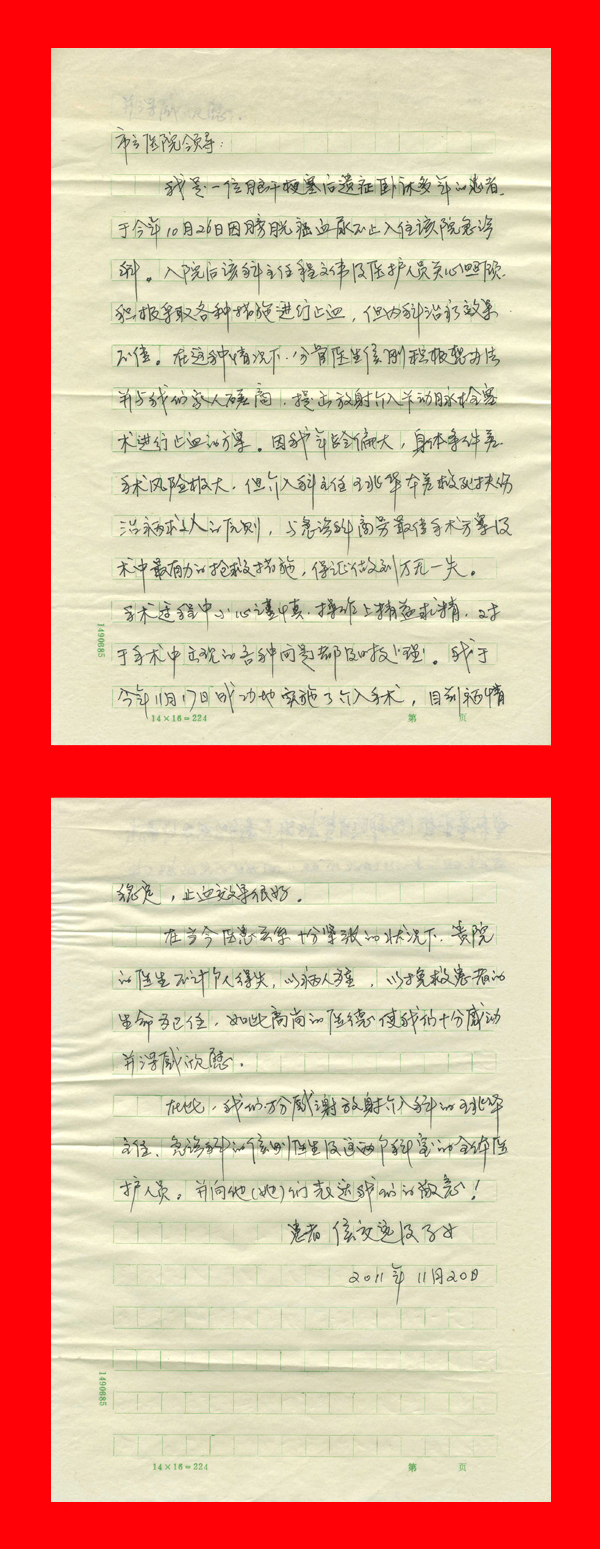 市立医院领导：
我是一位脑干梗塞后遗症卧床多年的患者，
于今年10月26日因膀胱癌血尿不止入住该院急诊
科。入院后该科主任程文伟及医护人员关心照顾，
积极采取各种措施进行止血，但内科治疗效果
不佳。在这种情况下，分管医生侯刚积极想办法
并与我们家人磋商，提出放射介入羊动脉栓塞
术进行止血的方案。因我年龄偏大，身体条件差
手术风险极大，但介入科主任王兆华本着救死扶伤
治病救人的原则，与急诊科商劳最佳手术方案及
术中最有力的抢救措施，保证做到万无一失。
手术过程中小心谨慎，操作上精益求精，对
于手术中出现的各种问题都及时处理。我于
今年11月17日成功地实施了介入手术，目前病情
1490685
14×16=224 第 页
稳定，止血效果很好。
在当今医患关系十分紧张的状况下，贵院
的医生不计个人得失，以病人为重，以挽救患者的
生命为己任，如此高尚的医德使我们十分感动
并深感欣慰。
在此，我们万分感谢放射介入科的王兆华
主任、急诊科的侯刚医生及这两个科室的全体医
护人员。并向他(她)们表达我们的敬意！
患者 侯 及子女
2011年11月20日
1490685
14×16=224 第 页